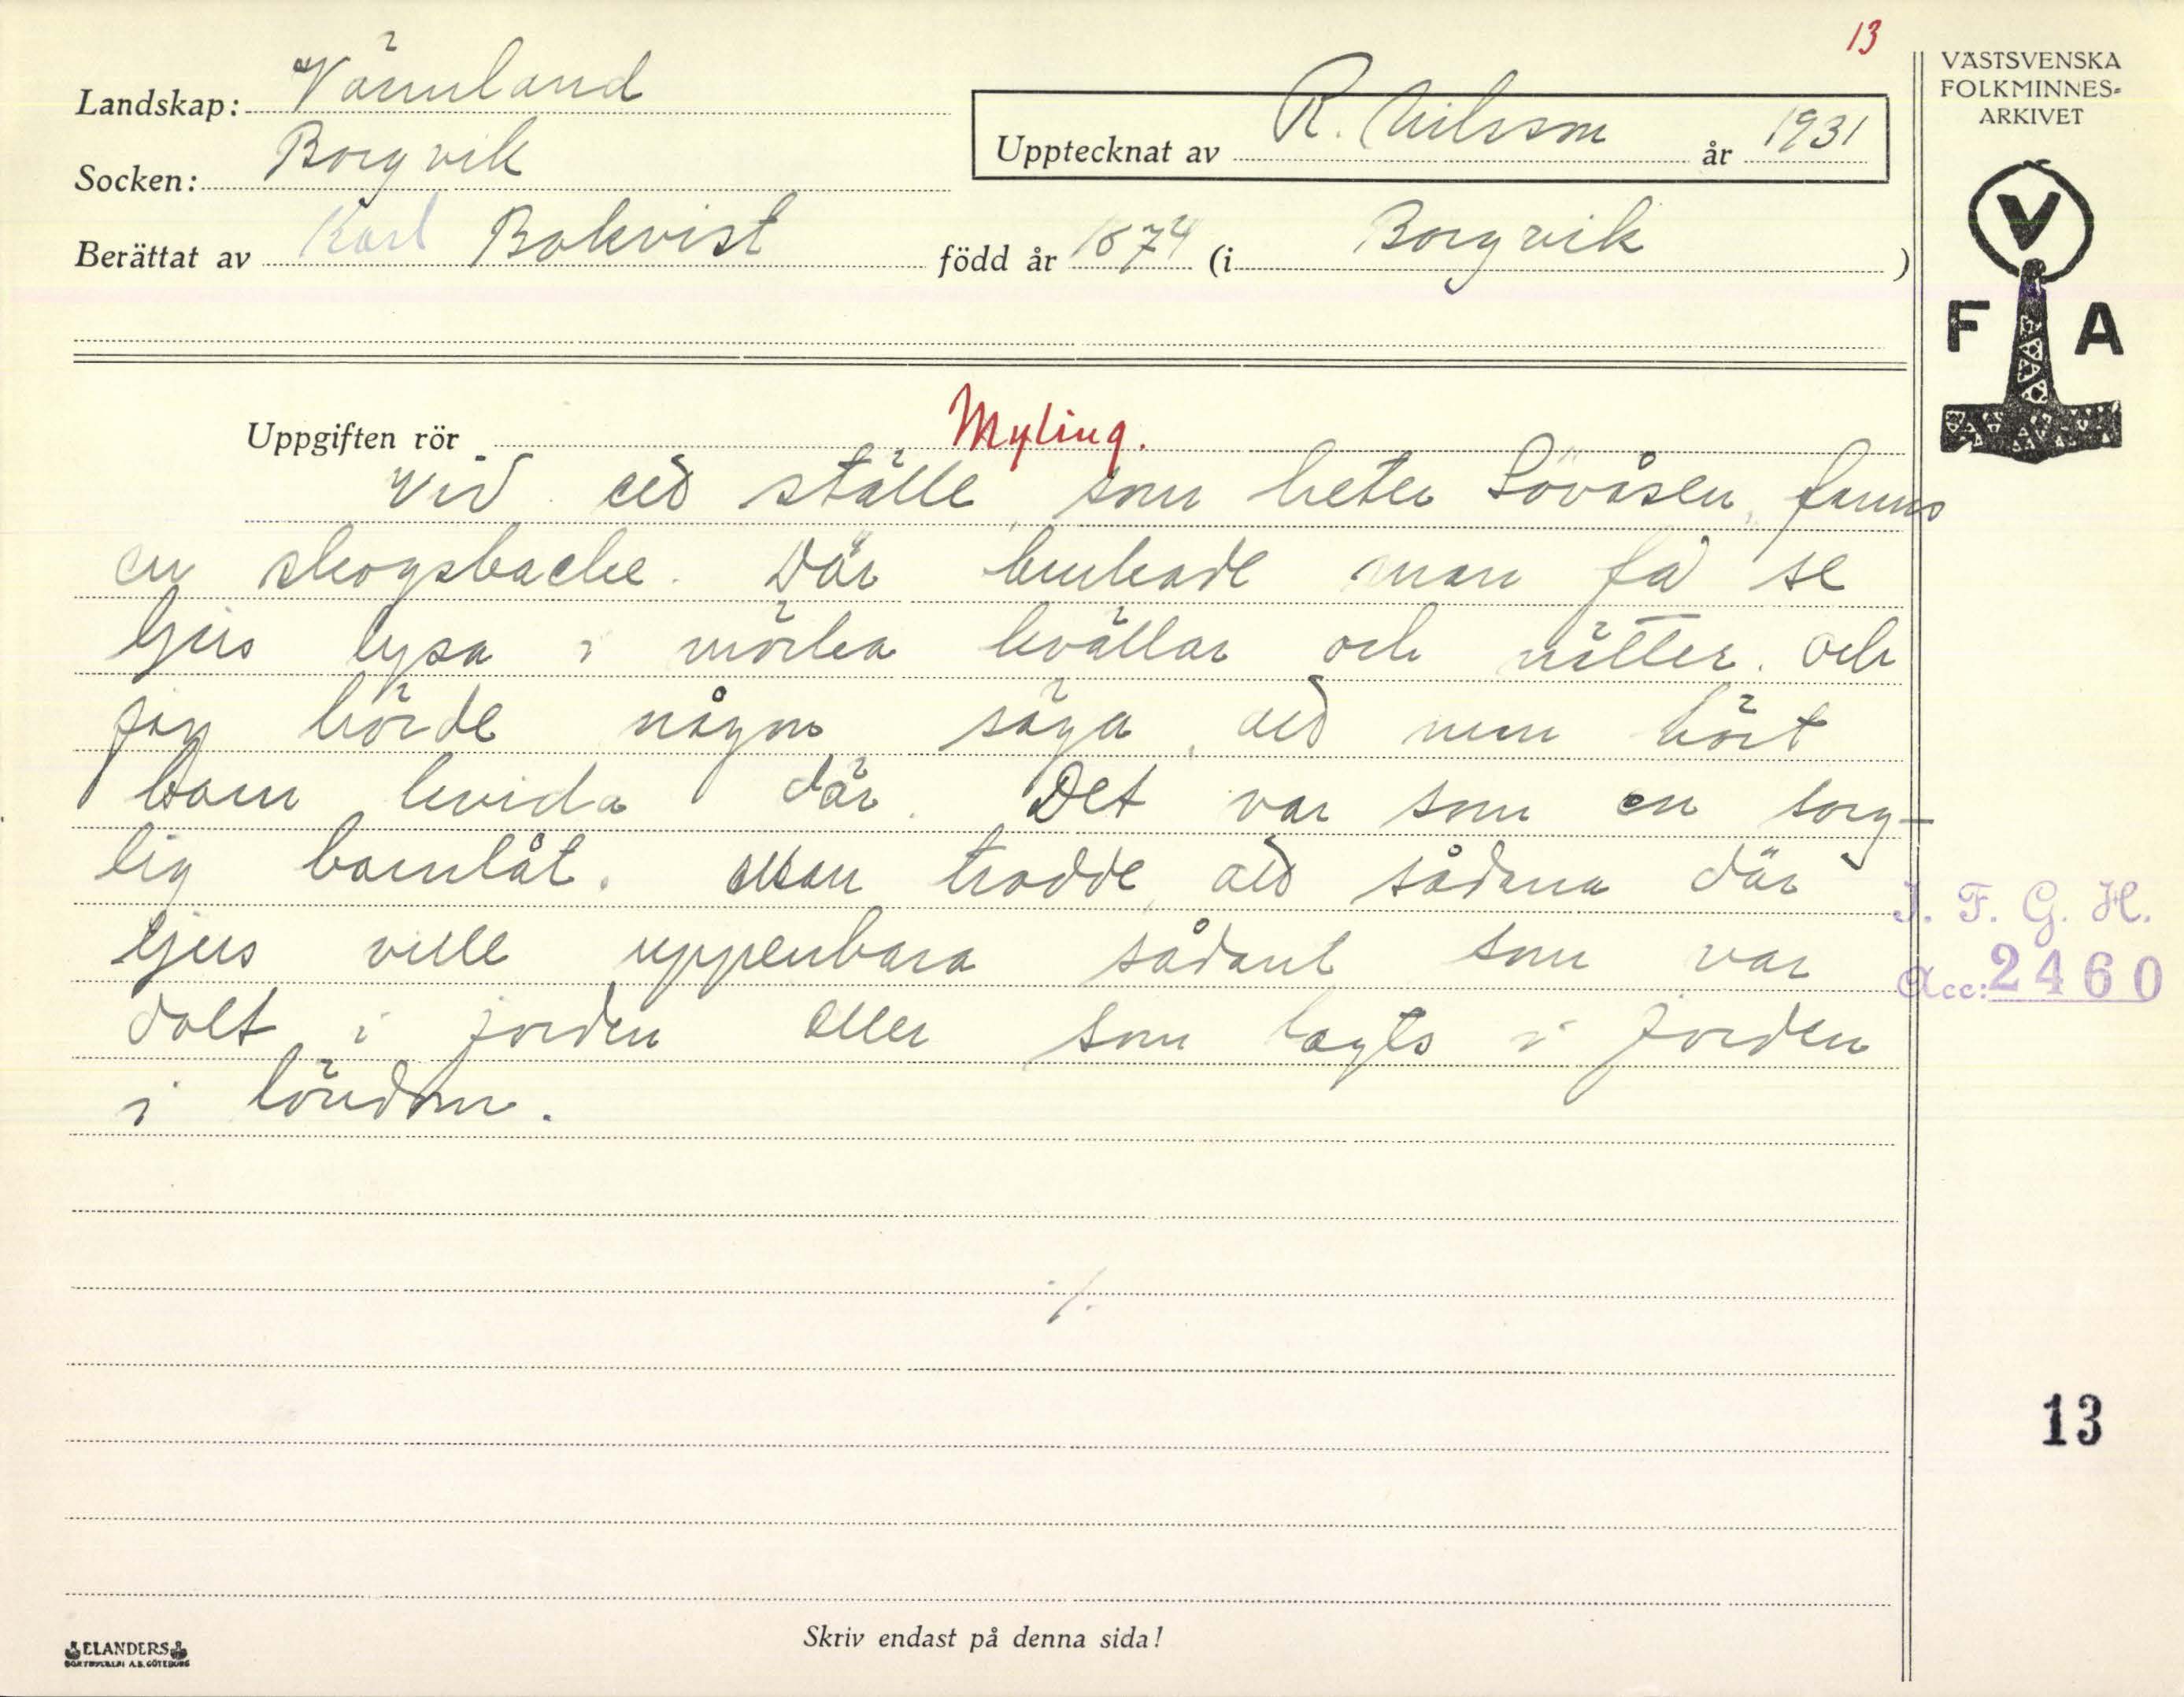 13
Landskap: Värmland
Socken: Borgvik
Berättat av Karl Bokvist född år 1874 (i Borgvik)
Upptecknat av R. Nilsson år 1931
VÄSTSVENSKA
FOLKMINNES-
ARKIVET
V
F A
Uppgiften rör Myling.
Vid ett ställe, som heter Lövåsen, fanns
en skogsbacke. Där brukade man få se
ljus lysa i mörka kvällar och nätter. Och
jag hörde någon säga, att man hört
barn kvida där. Det var som en sorg-
lig barnlåt. Man trodde, att sådana där
ljus ville uppenbara sådant som var
dolt i jorden eller som lagts i jorden
i löndom.
./.
I. F. G. H.
Acc: 2460
13
Skriv endast på denna sida!
ELANDERS
BOKTRYCKERI A.B. GÖTEBORG